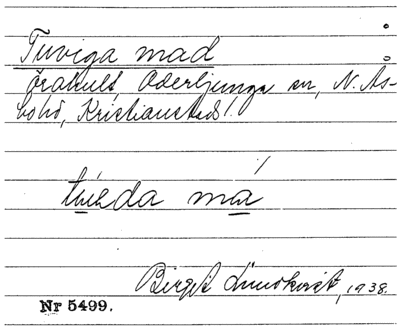 Tuviga mad
Örahult, Oderljunga sn, N. Ås-
bo hd, Kristianstads l.
má
Birgit Lundkvist, 1938.
Nr 5499.